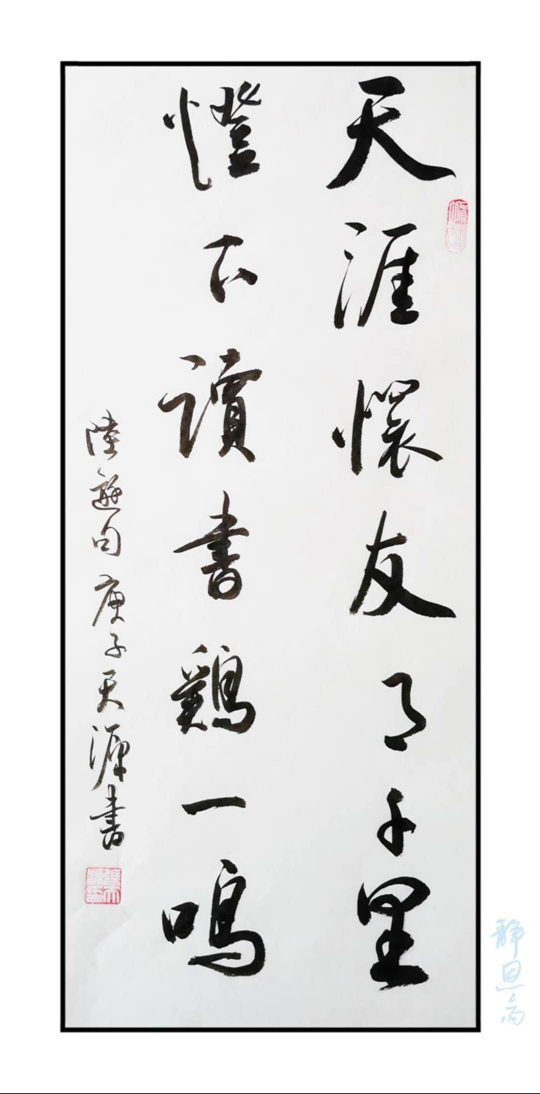 天涯懷友月千里
燈下讀書鷄一鳴
陸遊句 庚子天源書